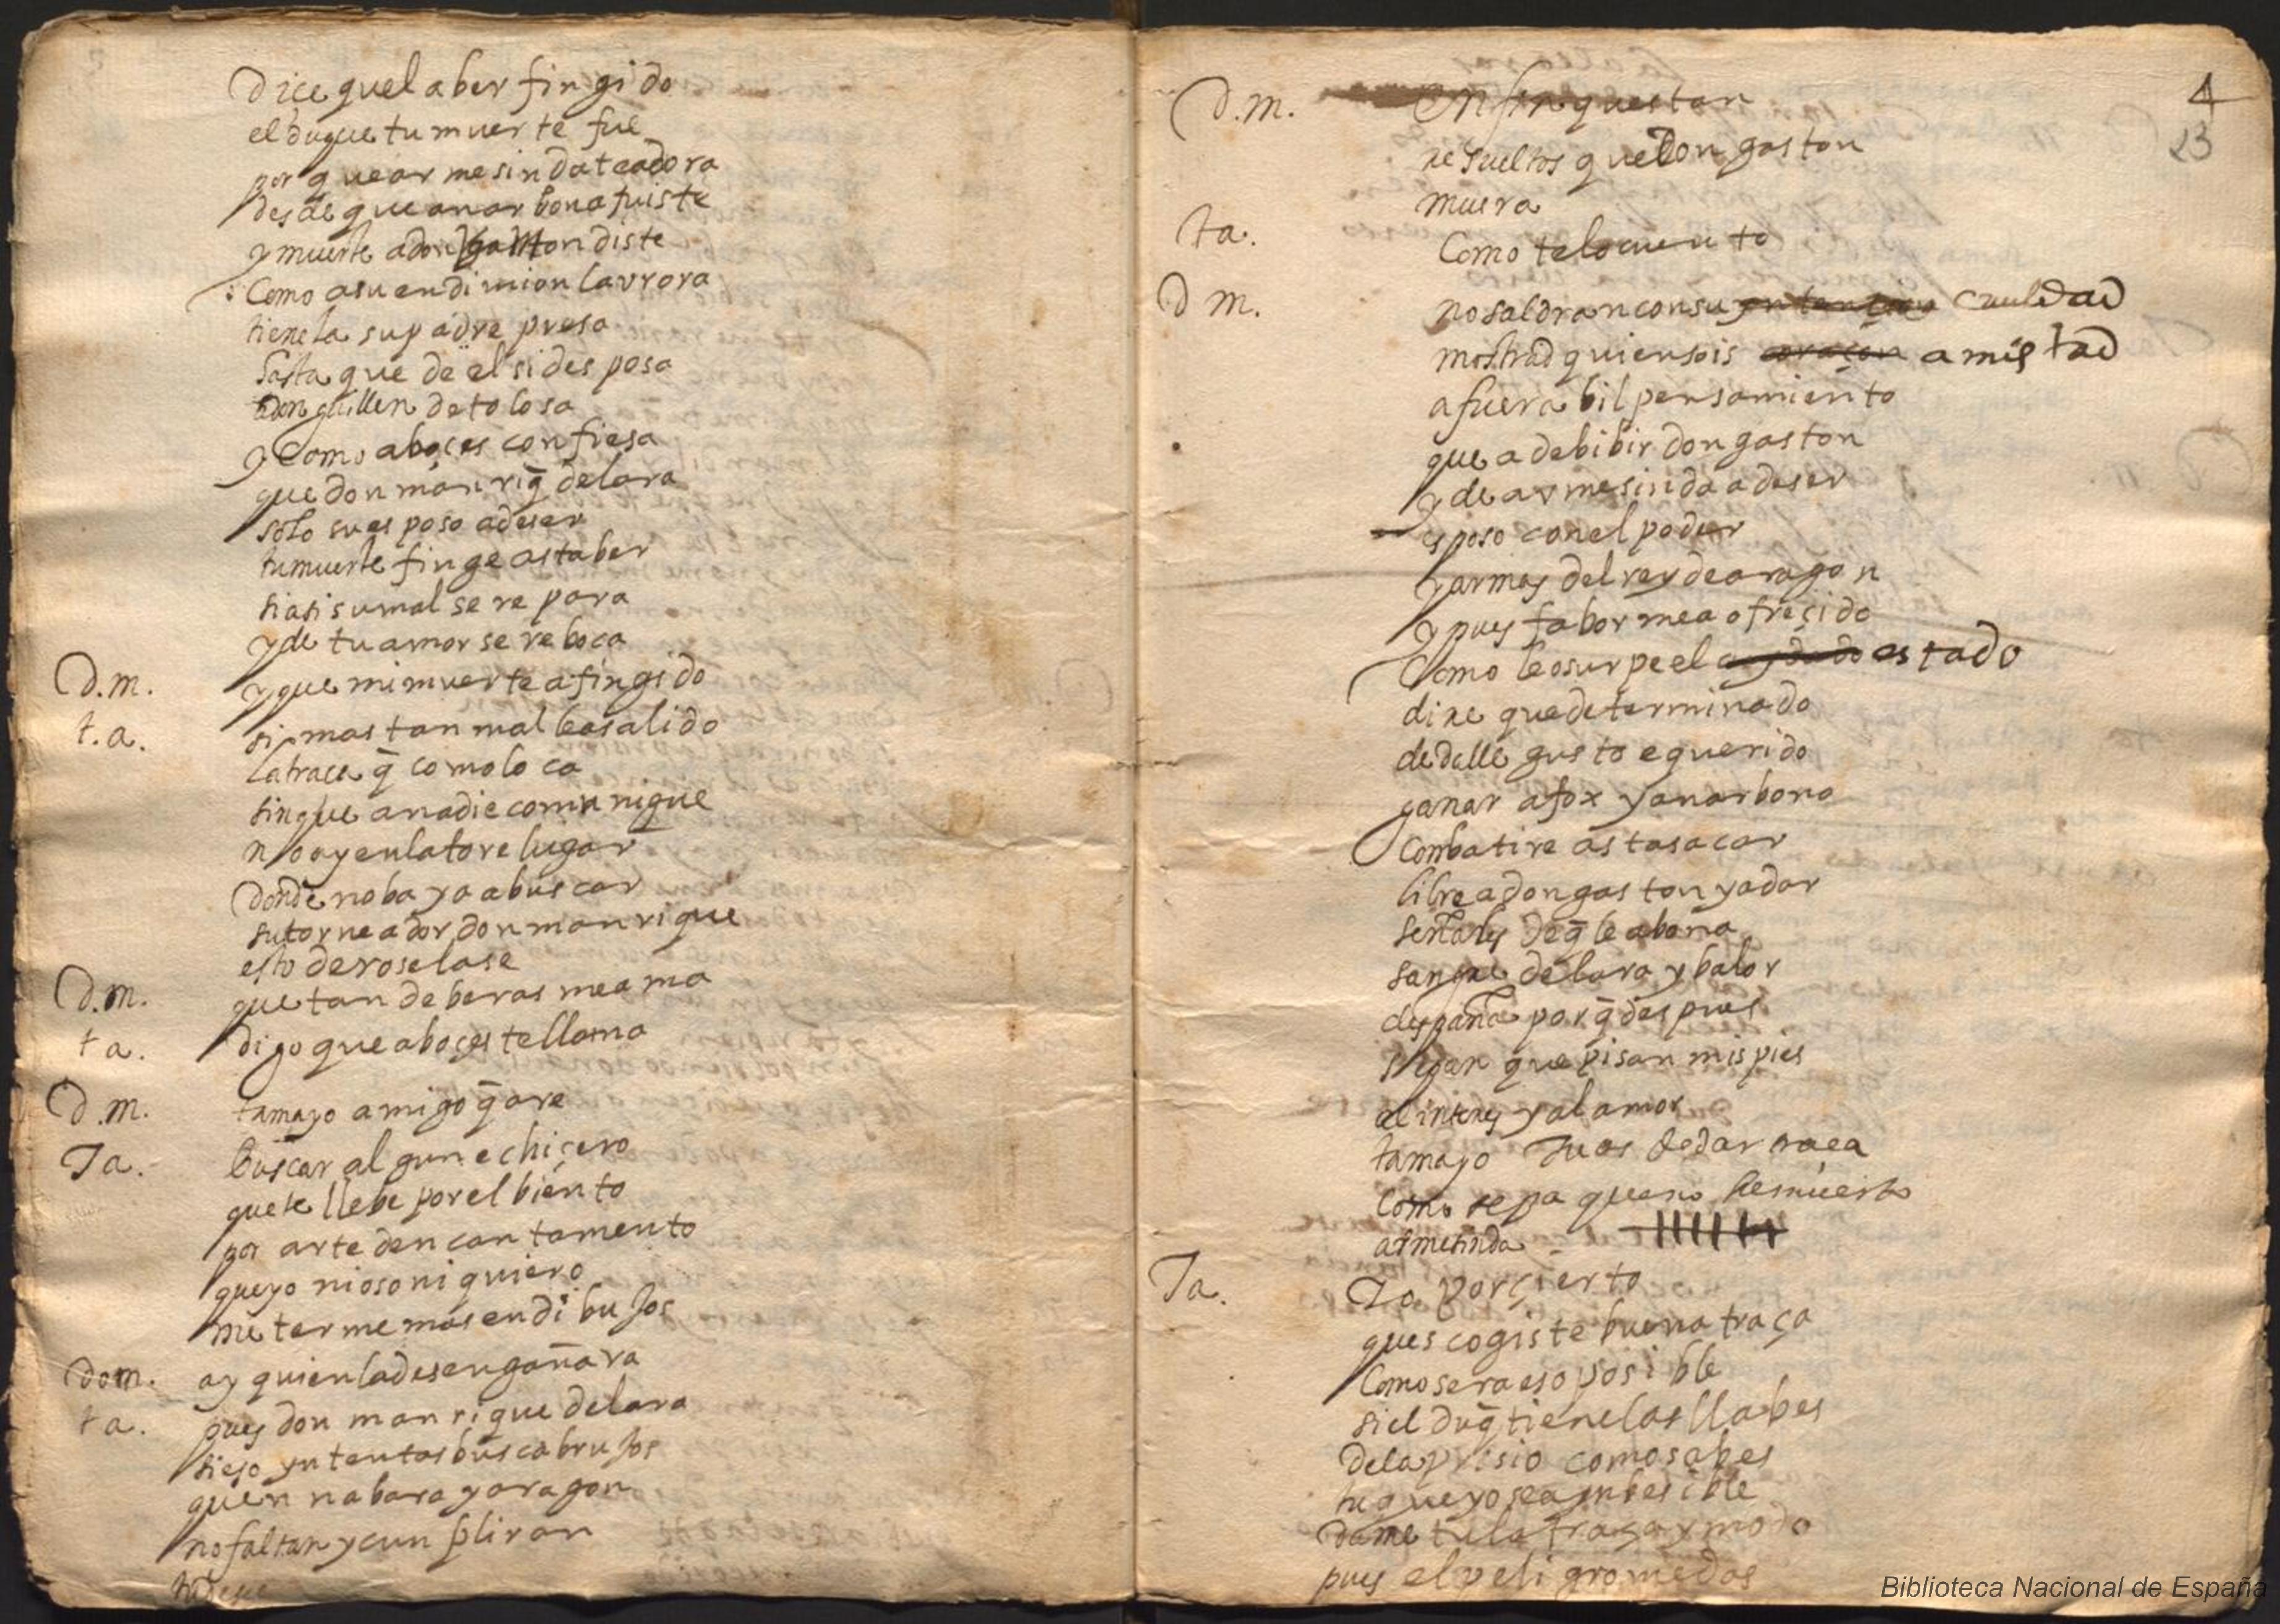 Dice quel aber fingido
el duque tu muerte fue
por que armesinda teadora
desde que anarbona fuiste
y muerte a don gaston diste
Como asu endimion laurora
tienela su padre presa
hasta que de el si desposa
a don guillen de tolosa
y como aboces confiesa
que don manriq̄ de lara
solo su esposo a de ser
tu muerte finge asta ber
si asi su mal se repara
y de tu amor se reboca
D.m. y que mi muerte a fingido
t.a. si mas tan mal lea salido
la traça q̄ como loca
sin que a nadie comunique
no ay en la tore lugar
donde no baya a buscar
su torneador don manrique
esto de rosela se
D.m. que tan de beras me ama
ta. digo que a boçes te llama
D.m. tamayo amigo q̄ are
Ta. buscar algun echiçero
que te llebe por el biento
por arte dencantamento
que yo ni oso ni quiero
meterme mas en dibujos
dom. ay quien la desengañara
ta. pues don manrique de lara
si eso yntentas busca brujos
quen nabara y aragon
no faltan y cunpliran
tu deseo
4
23
D.m. En fin questan
resueltos que don gaston
muera
ta. Como telo cuento
D m. no saldran con su crueldad
mostrad quien sois amistad
afuera bil pensamiento
que a de bibir don gaston
y de armesinda a de ser
esposo con el poder
y armas del rey de aragon
y pues fabor mea ofreçido
Como le osurpe el estado
dire que determinado
de dalle gusto e querido
ganar a fox y anarbona
Conbatire asta sacar
libre a don gaston y a dar
señales de q̄ le abona
sangre de lara y balor
despaña por q̄ despues
sepan que pisan mis pies
al interes y al amor
tamayo tu as de dar traça
Como sepa que no he muerto
armesinda
Ta. Yo por çierto
ques cogiste buena traça
Como sera eso posible
si el duq̄ tiene las llabes
de la prisio como sabes
tu que yo sea ynbesible
dame tu la traça y modo
pues el peligro me das
Biblioteca Nacional de España